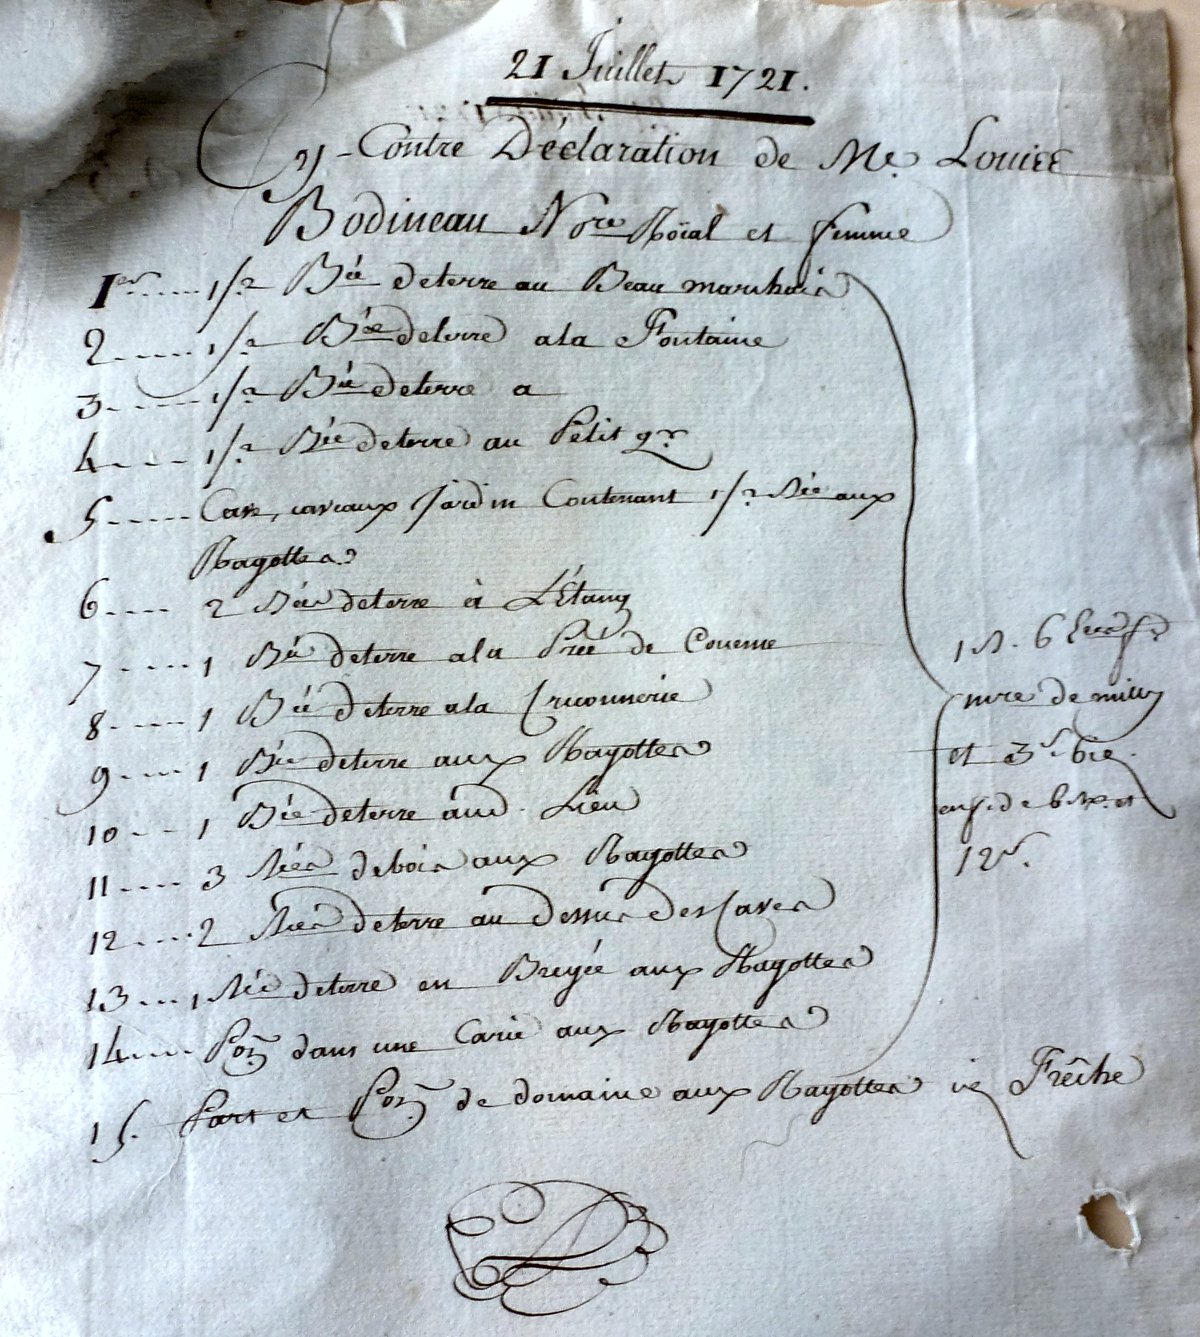 21 Juillet 1721.
Contre Déclaration de Me. Louise
Bodineau Nore Roïal et femme
1er ..... 1/2 Bée de terre au Beau marchais
2 ...... 1/2 Bée de terre a la Fontaine
3 ...... 1/2 Bée de terre a
4 .... 1/2 Bée de terre au Petit qr
5 ..... Cave, caveaux Jardin Contenant 1/2 Bée aux
Ragottes
6 .... 2 Bées de terre à L'Étang
7 .... 1 Bée de terre a la Préé de
8 .... 1 Bée de terre a la
9 .... 1 Bée de terre aux Ragottes
10 .. 1 Bée de terre aud. Lieu
11 .... 3 Bées de bois aux Ragottes
12 .... 2 Bées de terre au dessus des Caves
13 ... 1 Bée de terre en aux Ragottes
14 .... Pon dans une aux Ragottes
15. Part et Pon de domaine aux Ragottes Frêche
6
de
et 3
12s.